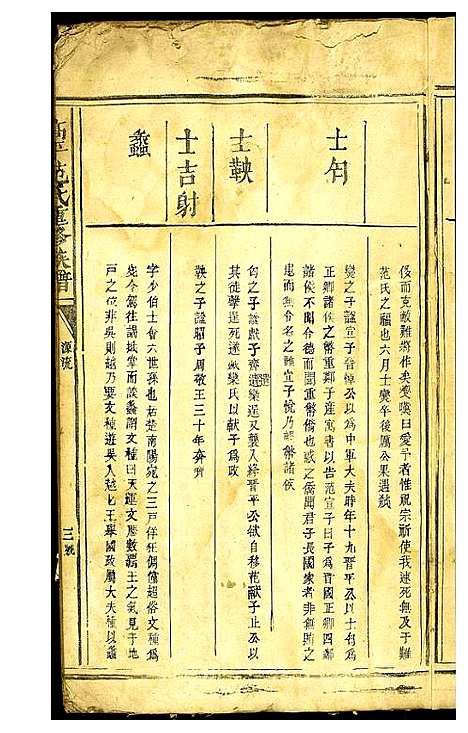 侈而克敵難將作矣愛我曰愛予者惟祝宗祈使我速死無及于難
范氏之福也六月士燮卒後厲公果遇弒
士匄
燮之子諡宣子晉悼公以為中軍大夫時年十九晉平公以士匄為
正卿諸侯之幣重鄭子產寓書以告范宣子曰子為晉國正卿四鄰
諸侯不聞令德而聞重幣僑也惑之僑聞君子長國家者非無賄之
患而無令名之難宣子悅乃輕幣諸侯
士鞅
匄之子諡獻子齊還欒逞又襲入絳晉平公欲自移范獻子止公以
其徒擊逞死遂滅欒氏以獻子為政
士吉射
鞅之子諡昭子周敬王三十年奔齊
蠡
字少伯士會六世孫也居楚南陽宛之三戶佯狂倜儻超俗文種為
宛令駕往謁抵掌而談蠡謂文種曰天運文歷數霸王之氣見于地
戶之位非吳則越乃要文種遊吳入越七王舉國政屬大夫種以蠡
范氏重修族譜
源流
三